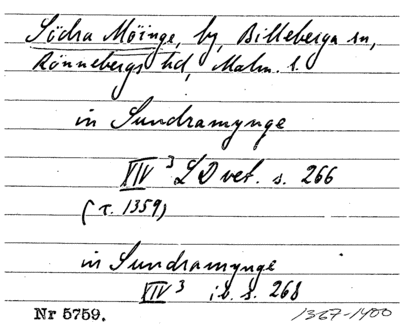 Södra Möinge, by, Billeberga sn,
Rönnebergs hd, Malm. l.
in Sundramynge
XIV 3 LD vet. s. 266
(τ. 1359)
in Sundramynge
XIV 3 ib. s. 268
Nr 5759. 1367-1400